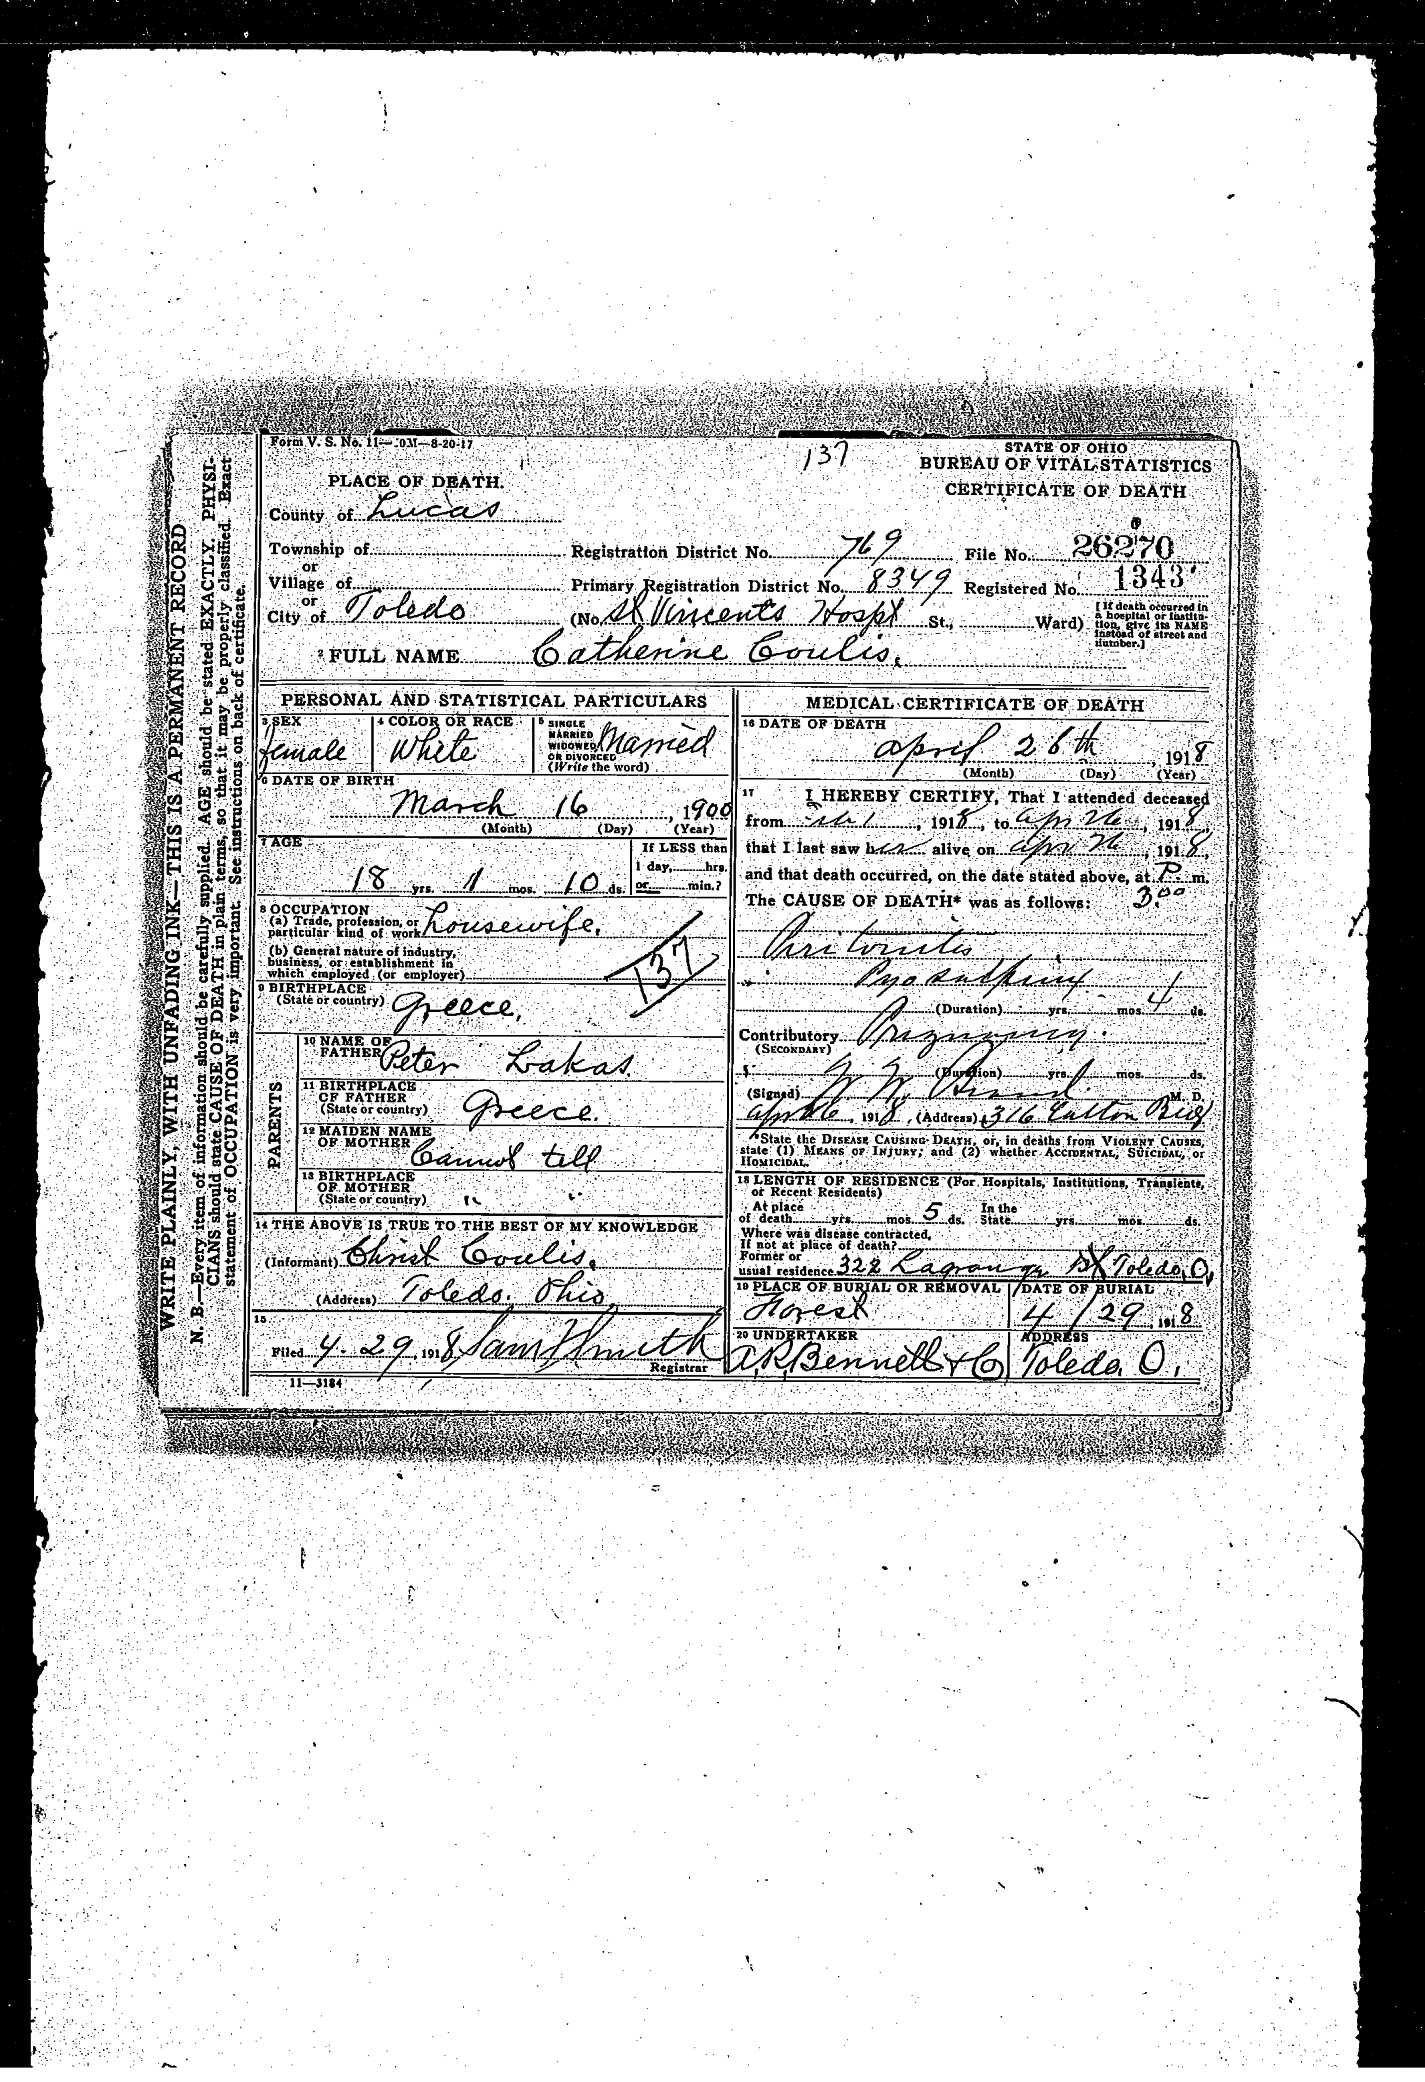 Form V. S. No. 11—50M—8-20-17
137
STATE OF OHIO
BUREAU OF VITAL STATISTICS
CERTIFICATE OF DEATH
PLACE OF DEATH.
County of Lucas
Township of
or
Village of
or
City of Toledo
Registration District No. 769
File No. 26270
Primary Registration District No. 8349
Registered No. 1343
(No. St Vincents Hospt St., Ward)
[If death occurred in
a hospital or institu-
tion, give its NAME
instead of street and
number.]
2 FULL NAME Catherine Coulis.
PERSONAL AND STATISTICAL PARTICULARS
3 SEX
female
4 COLOR OR RACE
White
5 SINGLE
MARRIED
WIDOWED
OR DIVORCED
(Write the word)
Married
6 DATE OF BIRTH
March 16, 1900
(Month) (Day) (Year)
7 AGE
18 yrs. 11 mos. 10 ds.
If LESS than
1 day, hrs.
or min.?
8 OCCUPATION
(a) Trade, profession, or
particular kind of work housewife.
(b) General nature of industry,
business, or establishment in
which employed (or employer)
137
9 BIRTHPLACE
(State or country) Greece.
PARENTS
10 NAME OF
FATHER Peter Lakas.
11 BIRTHPLACE
OF FATHER
(State or country) Greece.
12 MAIDEN NAME
OF MOTHER Cannot tell
13 BIRTHPLACE
OF MOTHER
(State or country) " "
14 THE ABOVE IS TRUE TO THE BEST OF MY KNOWLEDGE
(Informant) Christ Coulis.
(Address) Toledo. Ohio
15
Filed 4-29, 1918
Registrar
11—3184
MEDICAL CERTIFICATE OF DEATH
16 DATE OF DEATH
April 26th, 1918
(Month) (Day) (Year)
17 I HEREBY CERTIFY, That I attended deceased
from 1, 1918, to Apr 26, 1918,
that I last saw her alive on Apr 26, 1918,
and that death occurred, on the date stated above, at P. m.
The CAUSE OF DEATH* was as follows: 3.00
Peritonitis
Pyosalpinx
(Duration) yrs. mos. 4 ds.
Contributory Pregnancy.
(SECONDARY)
(Duration) yrs. mos. ds.
(Signed) M. D.
Apr 26, 1918, (Address) 316
*State the DISEASE CAUSING DEATH, or, in deaths from VIOLENT CAUSES,
state (1) MEANS OF INJURY; and (2) whether ACCIDENTAL, SUICIDAL, or
HOMICIDAL.
18 LENGTH OF RESIDENCE (For Hospitals, Institutions, Transients,
or Recent Residents)
At place
of death yrs. mos. 5 ds.
In the
State yrs. mos. ds.
Where was disease contracted,
If not at place of death?
Former or
usual residence 322 Lagrange St Toledo, O.
19 PLACE OF BURIAL OR REMOVAL
Forest
DATE OF BURIAL
4/29, 1918
20 UNDERTAKER
A.R. Bennett & Co
ADDRESS
Toledo O.
WRITE PLAINLY, WITH UNFADING INK—THIS IS A PERMANENT RECORD
N. B.—Every item of information should be carefully supplied. AGE should be stated EXACTLY. PHYSI-
CIANS should state CAUSE OF DEATH in plain terms, so that it may be properly classified. Exact
statement of OCCUPATION is very important. See instructions on back of certificate.